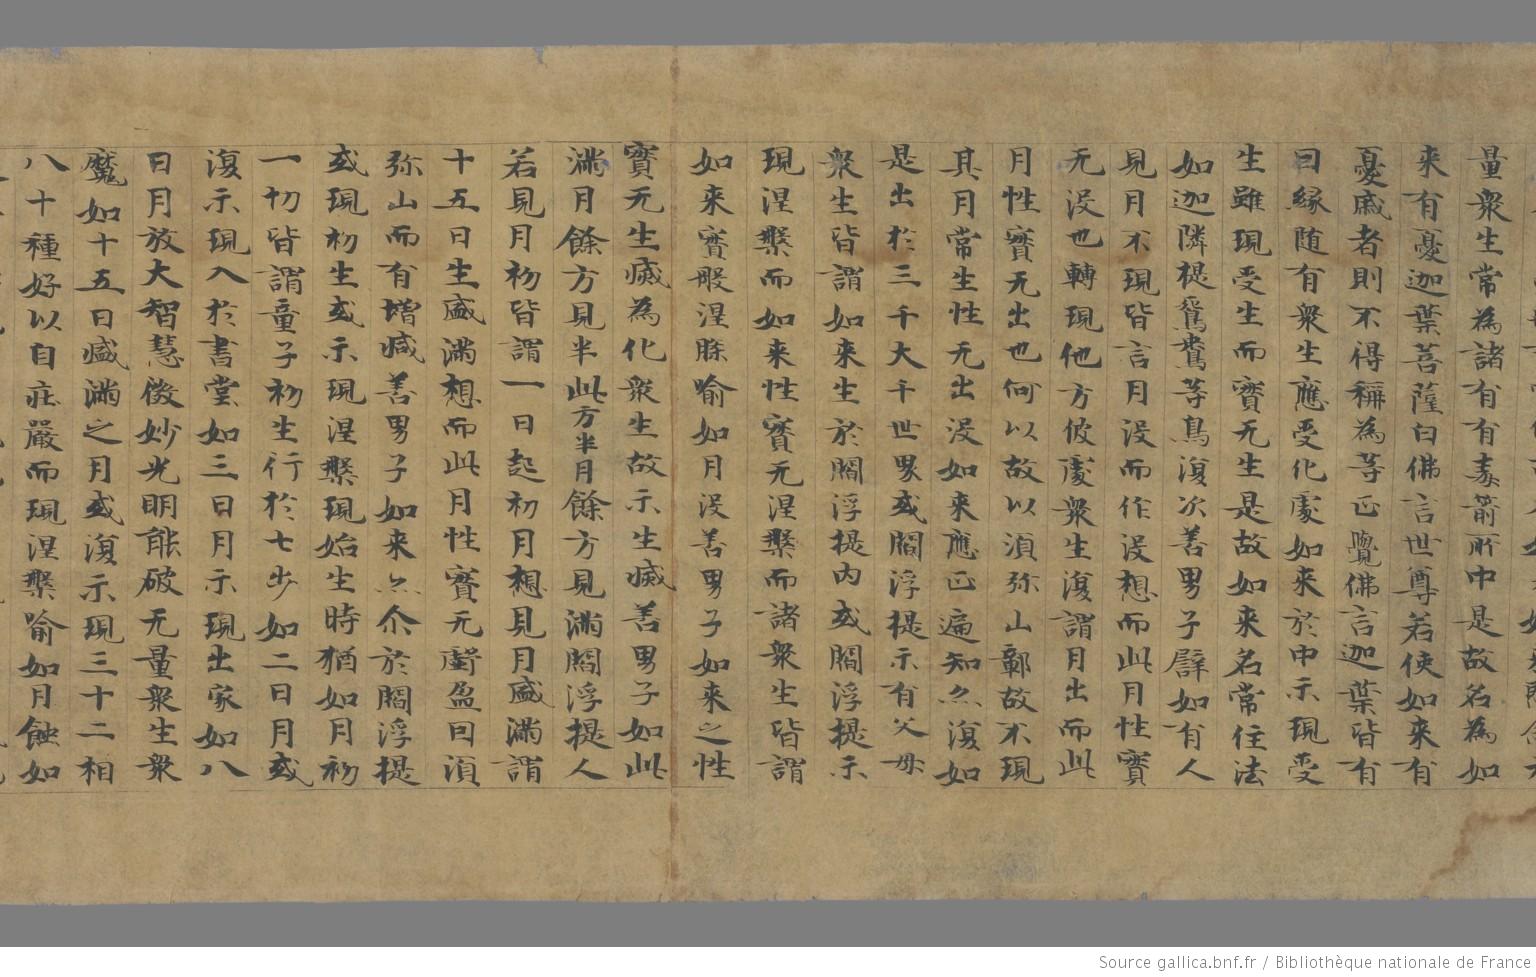 量衆生常為諸有有毒箭所中是故名為如
来有憂迦葉菩薩白佛言世尊若使如来有
憂戚者則不得稱為等正覺佛言迦葉皆有
因緣随有衆生應受化處如来於中示現受
生雖現受生而實无生是故如来名常住法
如迦隣提鴛鴦等鳥復次善男子譬如有人
見月不現皆言月没而作没想而此月性實
无没也轉現他方彼處衆生復謂月出而此
月性實无出也何以故以湏弥山鄣故不現
其月常生性无出没如来應正遍知亦復如
是出於三千大千世界或閻浮提示有父母
衆生皆謂如来生於閻浮提内或閻浮提示
現涅槃而如来性實无涅槃而諸衆生皆謂
如来實般涅槃喻如月没善男子如来之性
實无生滅為化衆生故示生滅善男子如此
滿月餘方見半此方半月餘方見滿閻浮提人
若見月初皆謂一日起初月想見月盛滿謂
十五日生盛滿想而此月性實无虧盈因湏
弥山而有增減善男子如来亦尒於閻浮提
或現初生或示現涅槃現始生時猶如月初
一切皆謂童子初生行於七步如二日月或
復示現入於書堂如三日月示現出家如八
日月放大智慧微妙光明能破无量衆生衆
魔如十五日盛滿之月或復示現三十二相
八十種好以自莊嚴而現涅槃喻如月蝕如
Source gallica.bnf.fr / Bibliothèque nationale de France